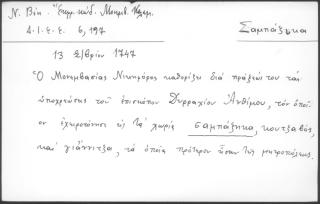 Ν. Βέη. Ἔκφρ. κώδ. Μονεμβ. Καλαμ.
Σαμπάζηκα
Δ.Ι.Ε.Ε. 6, 197
13 7/βρίου 1747
Ὁ Μονεμβασίας Νικηφόρος καθορίζει διὰ πράξεώς του τὰς
ὑποχρεώσεις τοῦ ἐπισκόπου Δυρραχίου Ἀνθίμου, τὸν ὁποῖ-
ον ἐχειροτόνησε εἰς τὰ χωρία σαμπάζηκα, κουτζαβός,
καὶ γιάννιτζα, τὰ ὁποῖα πρότερον ἦσαν τῆς μητροπόλεως.